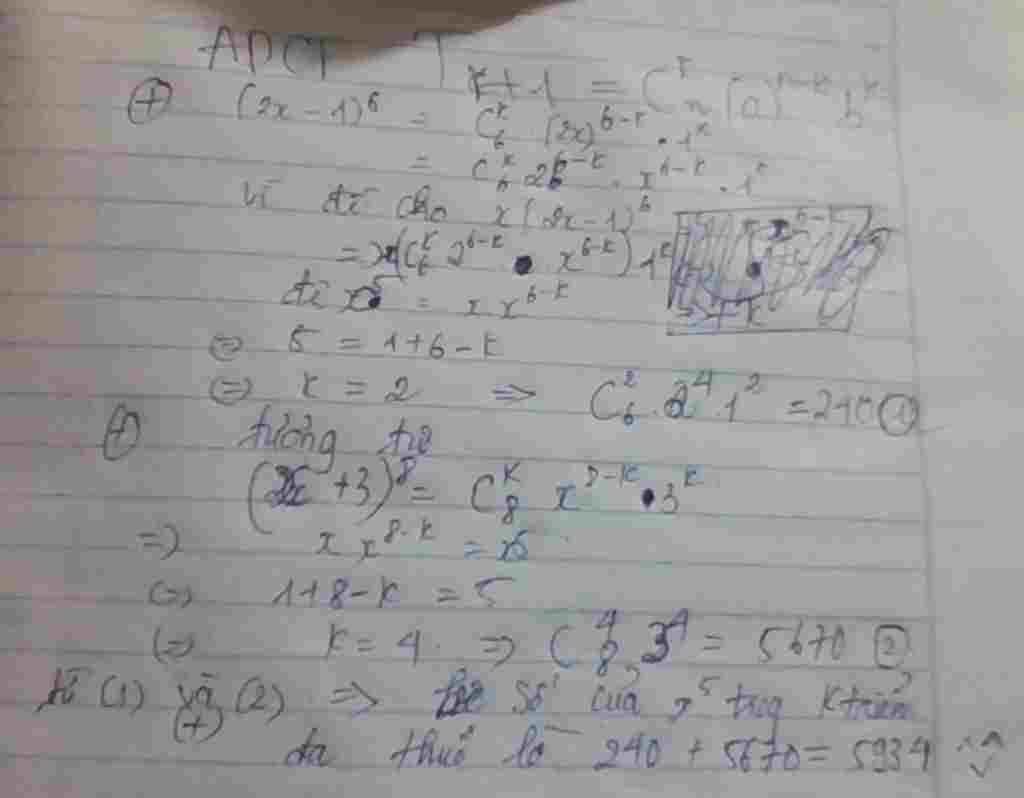 ADCT T k+1 = C_n^k (a)^{n-k} b^k
⊕ (2x-1)^6 = C_6^k (2x)^{6-k} . 1^k
= C_6^k 2^{6-k} . x^{6-k} . 1^k
Vì đề cho x(2x-1)^6
=> x(C_6^k 2^{6-k} . x^{6-k}) 1^k
để x^5 = x x^{6-k}
<=> 5 = 1+6-k
<=> k = 2 => C_6^2 . 2^4 . 1^2 = 240 ①
⊕ tương tự
(x+3)^8 = C_8^k x^{8-k} . 3^k
=> x x^{8-k} = x^5
<=> 1+8-k = 5
<=> k = 4 => C_8^4 . 3^4 = 5670 ②
từ (1) và (2) => hệ số của x^5 trog ktriển
(+)
đa thức là 240 + 5670 = 5934